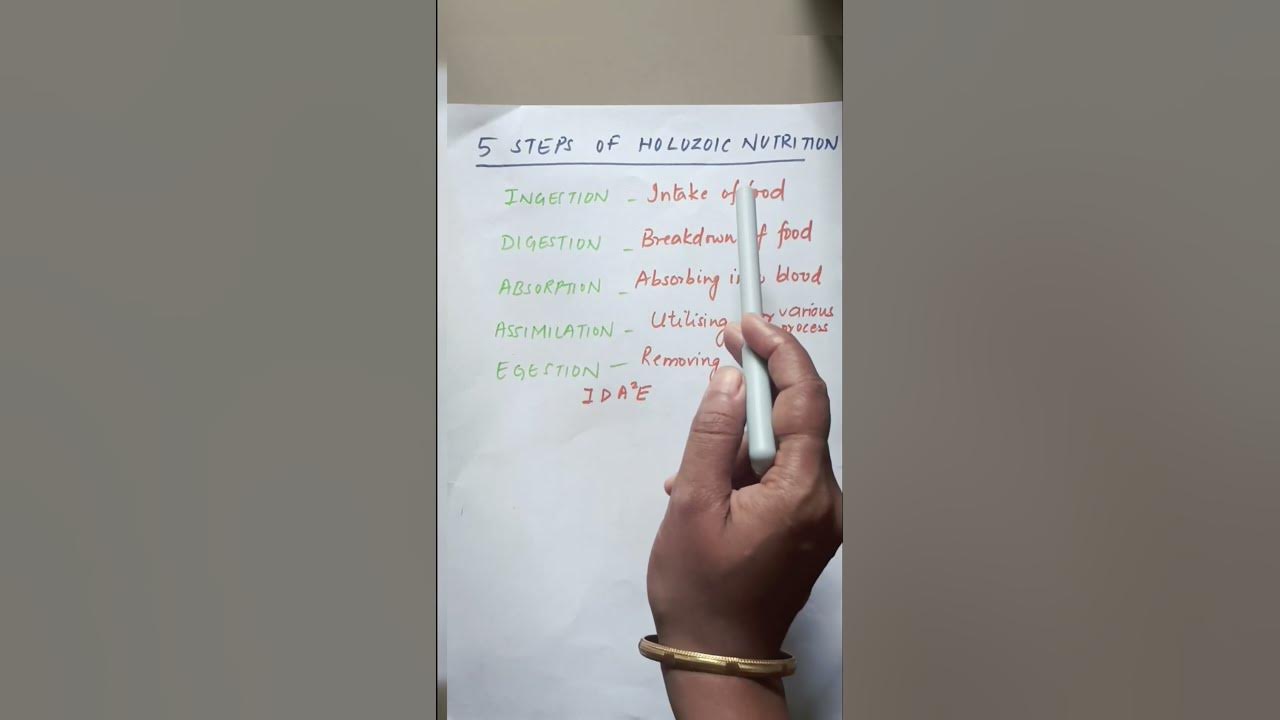 5 STEPS OF HOLOZOIC NUTRITION
INGESTION - Intake of food
DIGESTION - Breakdown of food
ABSORPTION - Absorbing into blood
ASSIMILATION - Utilising for various process
EGESTION - Removing
IDA²E